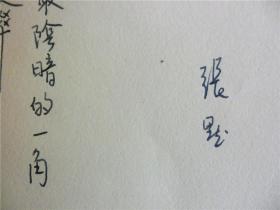 張默
陰暗的一角